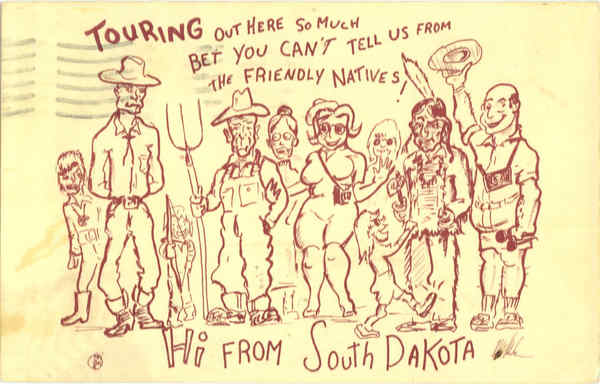 TOURING OUT HERE SO MUCH
BET YOU CAN'T TELL US FROM
THE FRIENDLY NATIVES!
Hi FROM SOUTH DAKOTA